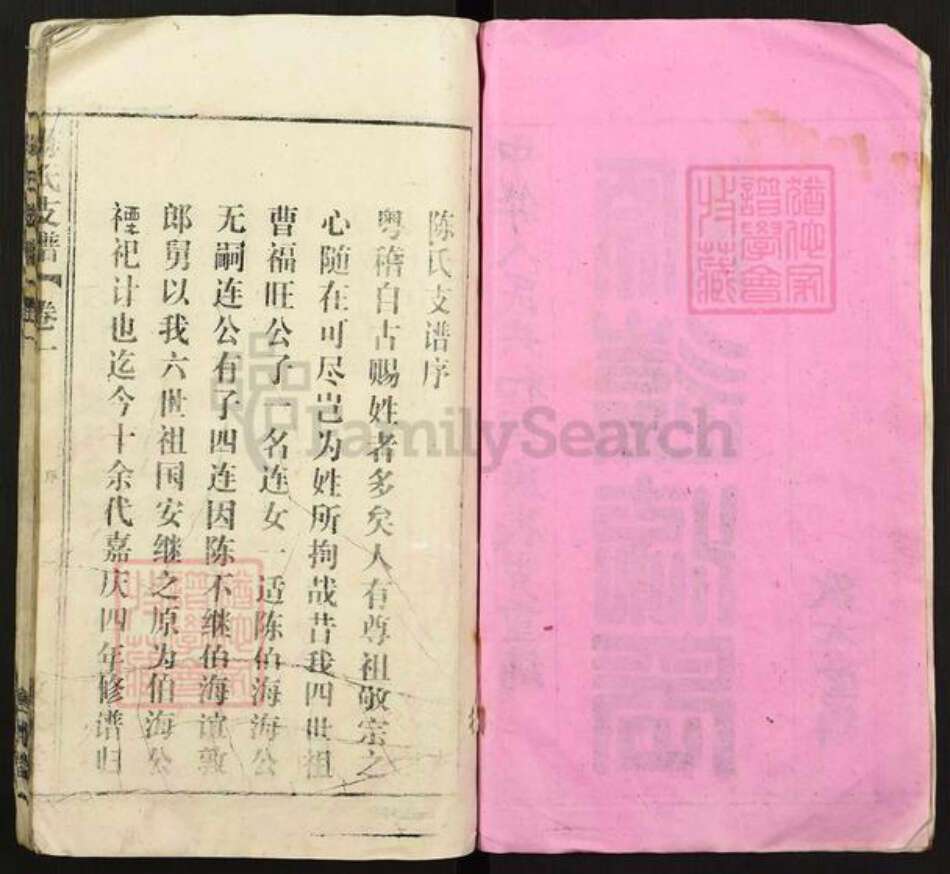 陈氏支谱序
粤稽自古赐姓者多矣人有尊祖敬宗之
心随在可尽岂为姓所拘哉昔我四世祖
曹福旺公子一名连女一适陈伯海海公
无嗣连公有子四连因陈不继伯海谊敦
郎舅以我六世祖国安继之原为伯海公
禋祀计也迄今十余代嘉庆四年修谱归
氏支谱 卷一
序
FamilySearch
犹他家谱学会收藏
犹他家谱学会收藏